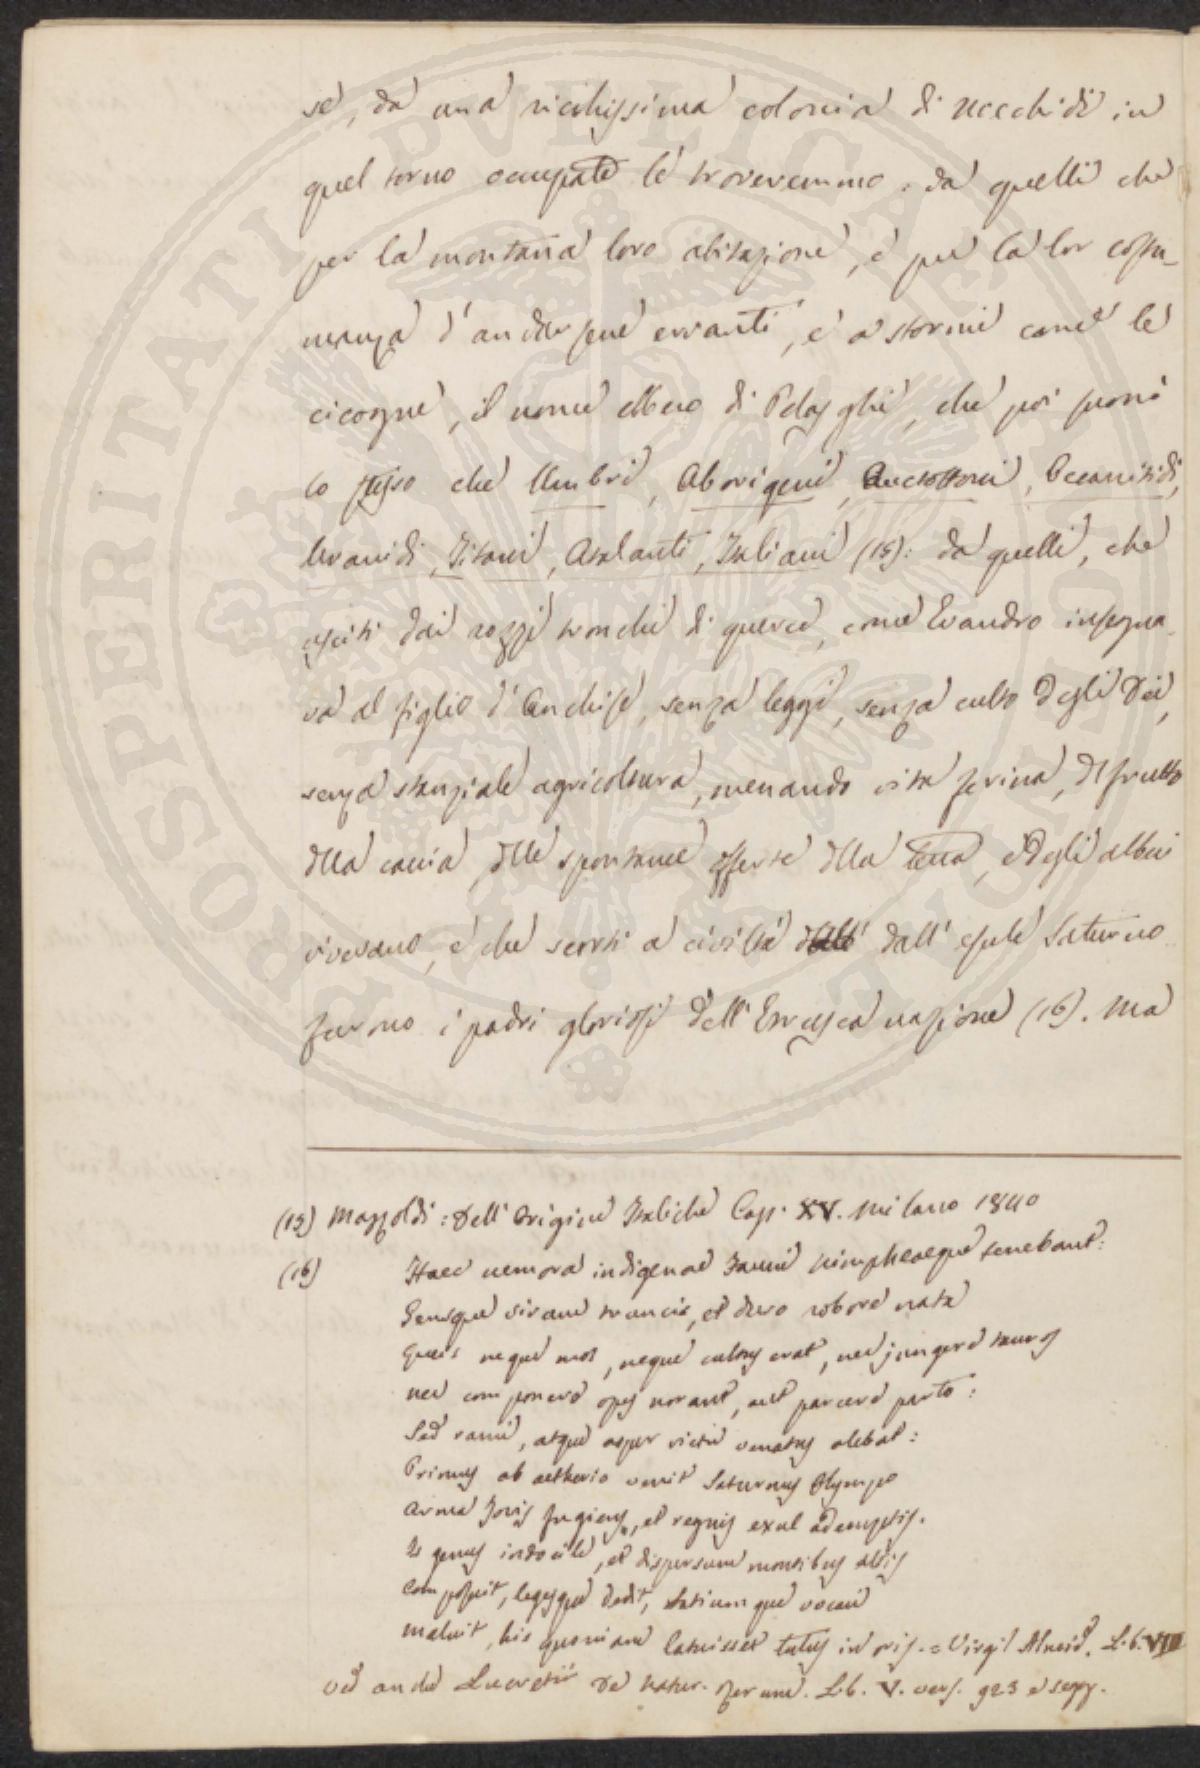 se, da una ricchissima colonia di Noachidi in
quel torno occupate le troveremmo: da quelli che
per la montana loro abitazione, e per la lor costu-
manza d'andarsene erranti, e a stormi come le
cicogne, il nome ebbero di Pelasghi, che poi suonò
lo stesso che Umbri, Aborigeni, Auctottoni, Oceanitidi,
Uranidi, Titani, Atalanti, Italiani (15): da quelli, che
esciti dai rozzi tronchi di querce, come Evandro insegna-
va al figlio d'Anchise, senza leggi, senza culto degli Dei,
senza stanziale agricoltura, menando vita ferina, del frutto
della caccia, delle spontanee offerte della terra, e degli alberi
vivevano, e che scorti a civiltà dall'esule Saturno
furono i padri gloriosi dell'Etrusca nazione (16). Ma
(15) Mazzoldi: Dell'Origini Italiche Cap. XV. Milano 1840
(16) Haec nemora indigenae Fauni Nimphaeque tenebant:
Gensque virum truncis, et duro robore nata
Queis neque mos, neque cultus erat, nec jungere tauros
nec componere opes norant, aut parcere parto:
Sed rami, atque asper victu venatus alebat:
Primus ab aetherio venit Saturnus Olympo
Arma Jovis fugiens, et regnis exul ademptis.
Is genus indocile, et dispersum montibus altis
Composuit, legesque dedit, Latiumque vocari
maluit, his quoniam latuisset tutus in oris. = Virgil Aeneid. Lib. VIII
Ved anche Lucretii De Natur. Rerum. Lib. V. vers. 923 e segg.
PROSPERITATI PUBLICAE